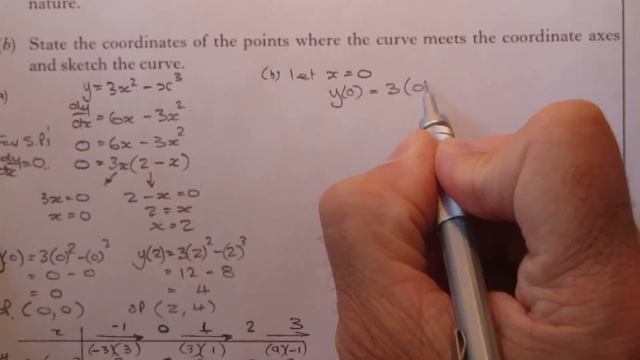 nature.
(b) State the coordinates of the points where the curve meets the coordinate axes
and sketch the curve.
a)
y = 3x² - x³
dy/dx = 6x - 3x²
For S.P.'s 0 = 6x - 3x²
dy/dx = 0. 0 = 3x(2 - x)
3x = 0 2 - x = 0
x = 0 2 = x
x = 2
y(0) = 3(0)² - (0)³ y(2) = 3(2)² - (2)³
= 0 - 0 = 12 - 8
= 0 = 4
(0, 0) SP (2, 4)
x -1 0 1 2 3
(-3)(3) (3)(1) (9)(-1)
(b) let x = 0
y(0) = 3(0)